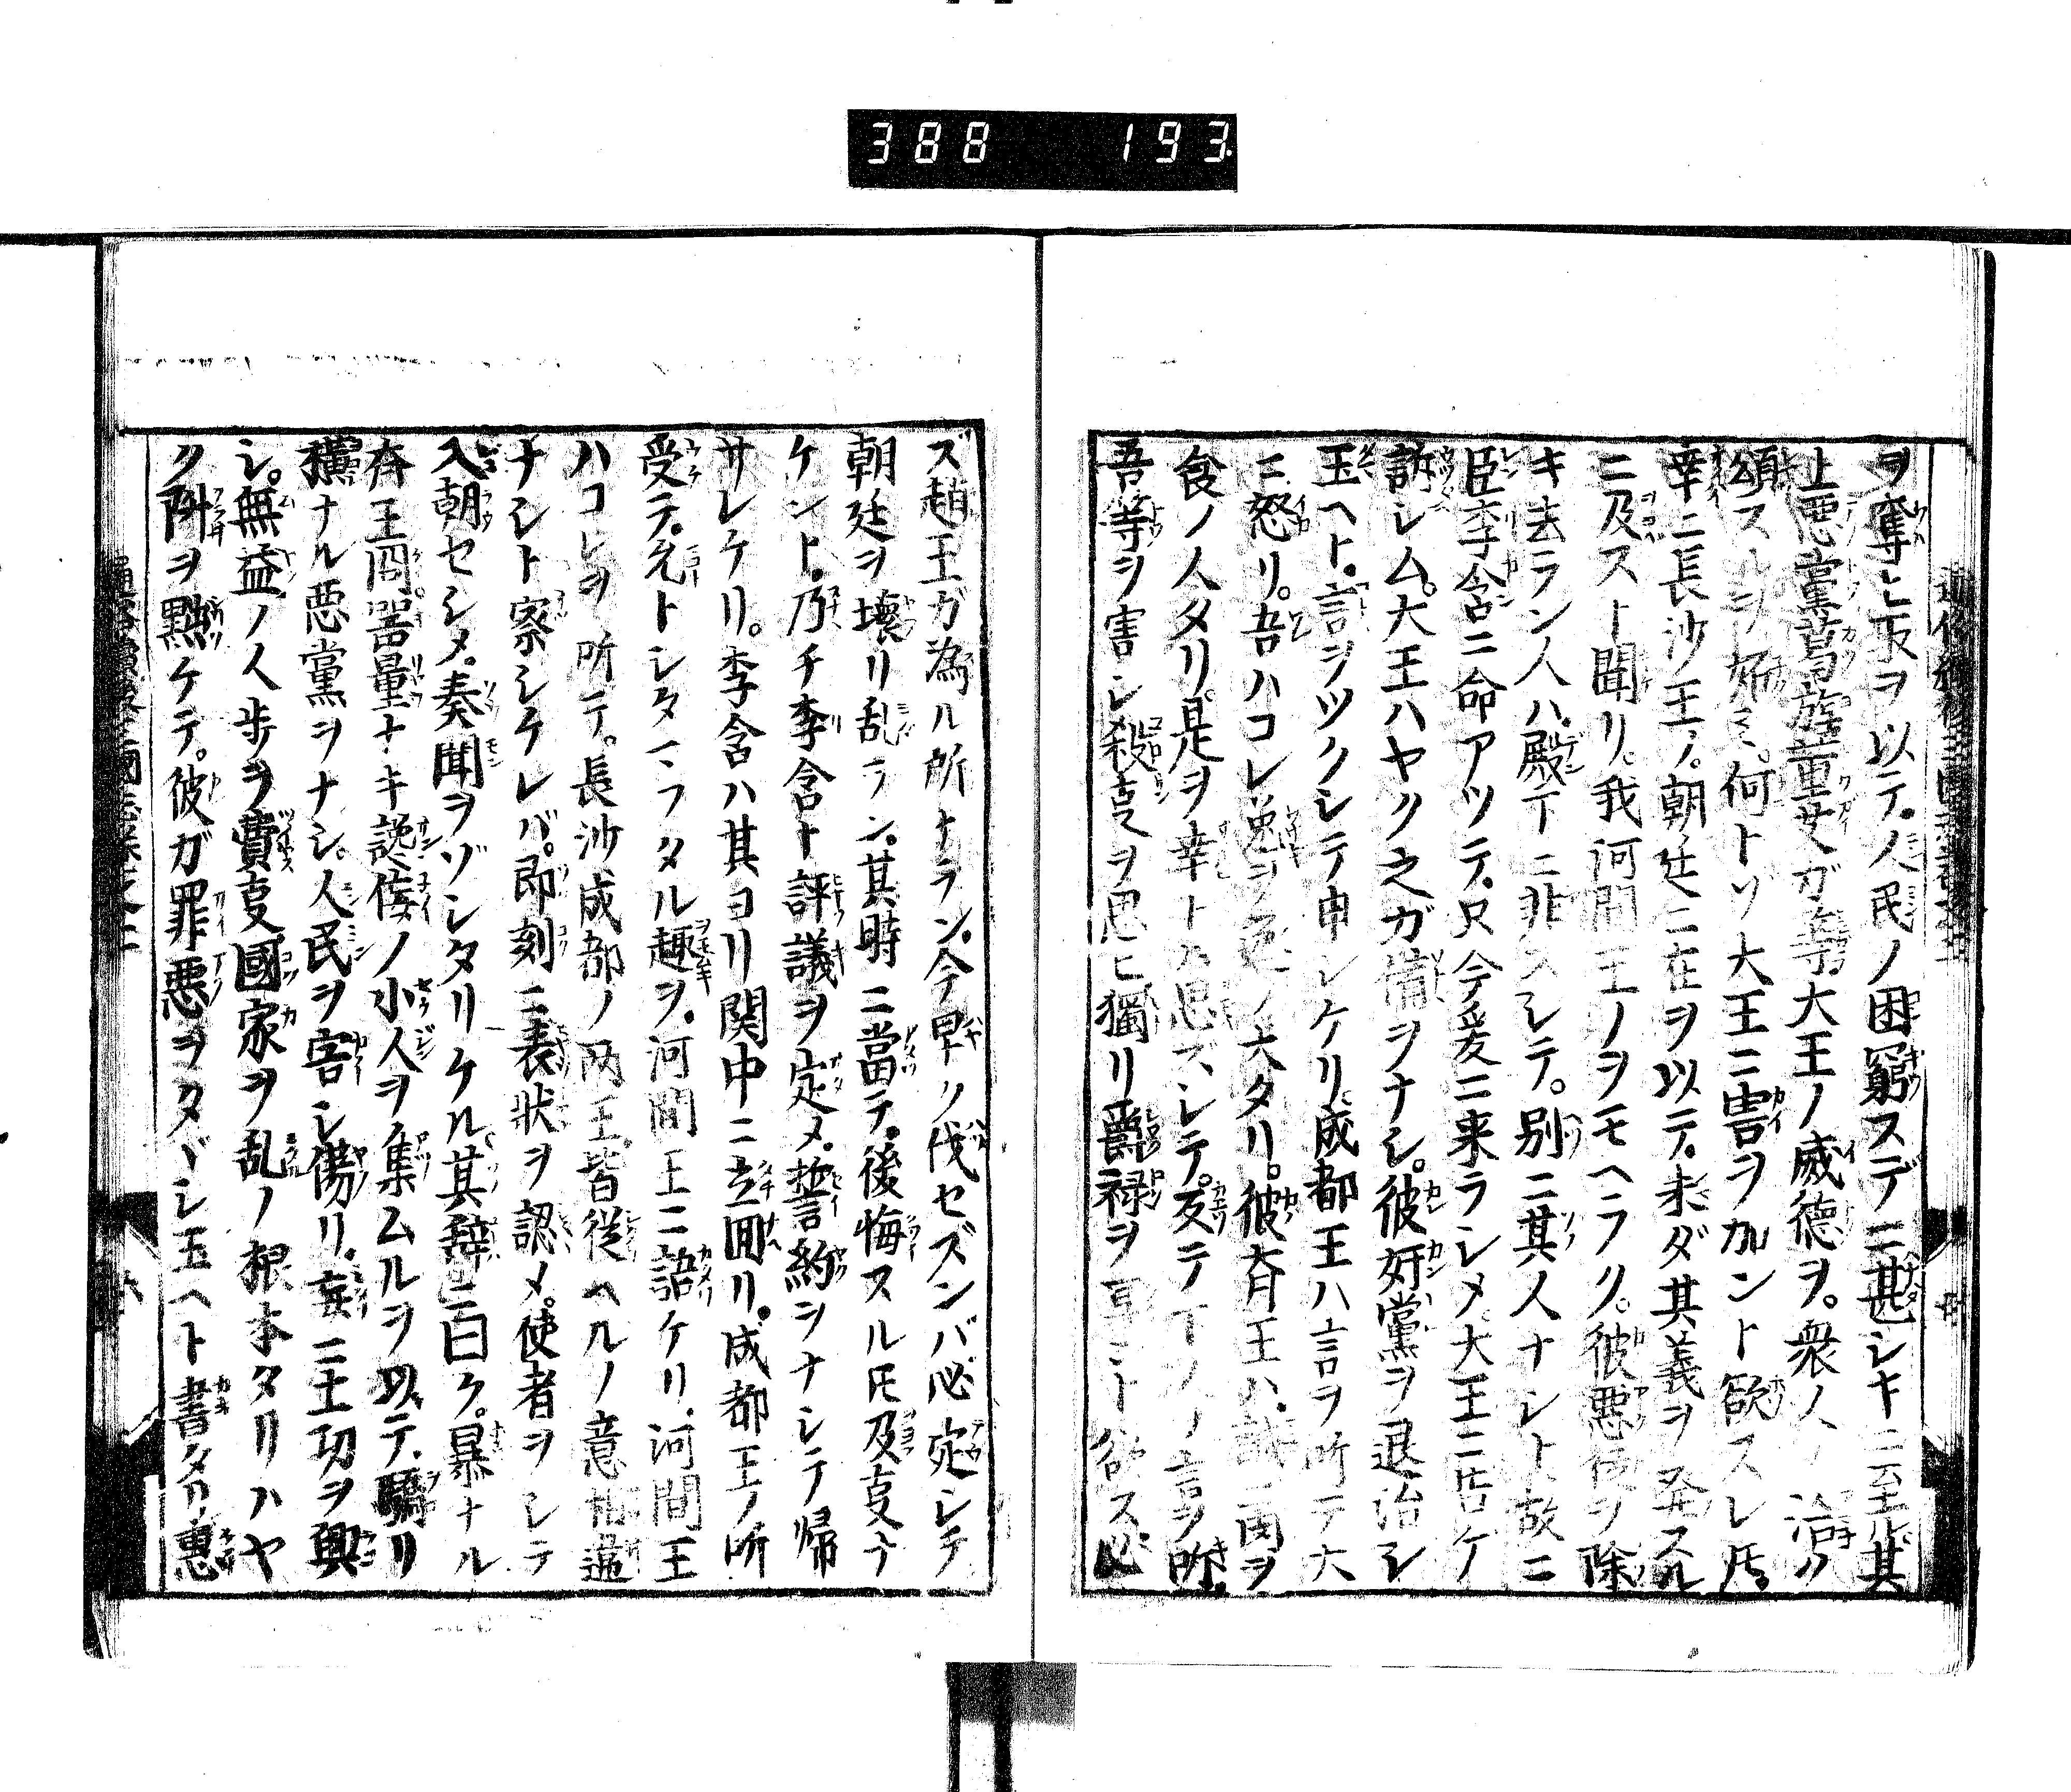 388 193
ヲ奪ヒ取ヲ以テ人民ノ困窮スデニ甚シキニ至ル其
上悪黨葛旟董艾ガ等大王ノ威徳ヲ衆ノ人
頌スルヲ妬ミ何トゾ大王ニ害ヲ加ント欲スレ𪜈
幸ニ長沙王ノ朝廷ニ在ヲ以テ未ダ其義ヲ発スル
ニ及ズト聞リ我河間王ノヲモヘラク彼悪ヲ除
キ去ラン人ハ殿下ニ非ズシテ別ニ其人ナシト故ニ
臣李含ニ命アツテ只今爰ニ来ラシメ大王ニ告ケ
訴シム大王ハヤク之ガ備ヲナシ彼奸黨ヲ退治シ
玉ヘト言ヲツクシテ申シケリ成都王ハ言ヲ所テ大
ニ怒リ吾ハコレノ大タリ彼斉王ハ
食ノ人タリ是ヲ幸ト思ズシテ反テ
吾等ヲ害シ殺亨ヲ思ヒ獨リ爵禄ヲ亨ント欲ス必
ズ趙王ガ為ル所ナラン今早ク伐セズンバ必定シテ
朝廷ヲ壊リ乱ラン其時ニ當テ後悔スル𪜈及亨ナ
ケント乃チ李含ト評議ヲ定メ誓約ヲナシテ帰
サレケリ李含ハ其ヨリ関中ニ立回リ成都王ノ所
受テ允トシタマフタル趣ヲ河間王ニ語ケリ河間王
ハコレヲ所テ長沙成都ノ两王皆従ヘルノ意相違
ナシト察シケレバ即刻ニ表状ヲ認メ使者ヲシテ
入朝セシメ奏聞ヲゾシタリケル其辞ニ曰ク暴ナル
斉王冏器量ナキ讒侫ノ小人ヲ集ムルヲ以テ驕リ
横ナル悪黨ヲナシ人民ヲ害シ傷リ妄ニ土功ヲ興
シ無益ノ人歩ヲ費亨國家ヲ乱ノ根本タリハヤ
ク罸ヲ點ケテ彼ガ罪悪ヲタヾシ玉ヘト書タリ惠